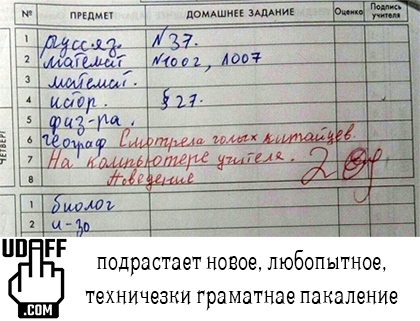 № ПРЕДМЕТ ДОМАШНЕЕ ЗАДАНИЕ Оценка Подпись учителя
1 русс.яз. №37.
2 математ №1002, 1007
3 математ.
4 истор. §27.
5 физ-ра.
6 географ Смотрела голых китайцев.
7 На компьютере учителя.
8 Поведение 2
ЧЕТВЕРГ
1 биолог
2 и-зо
UDAFF
.COM
подрастает новое, любопытное,
техничезки граматнае пакаление